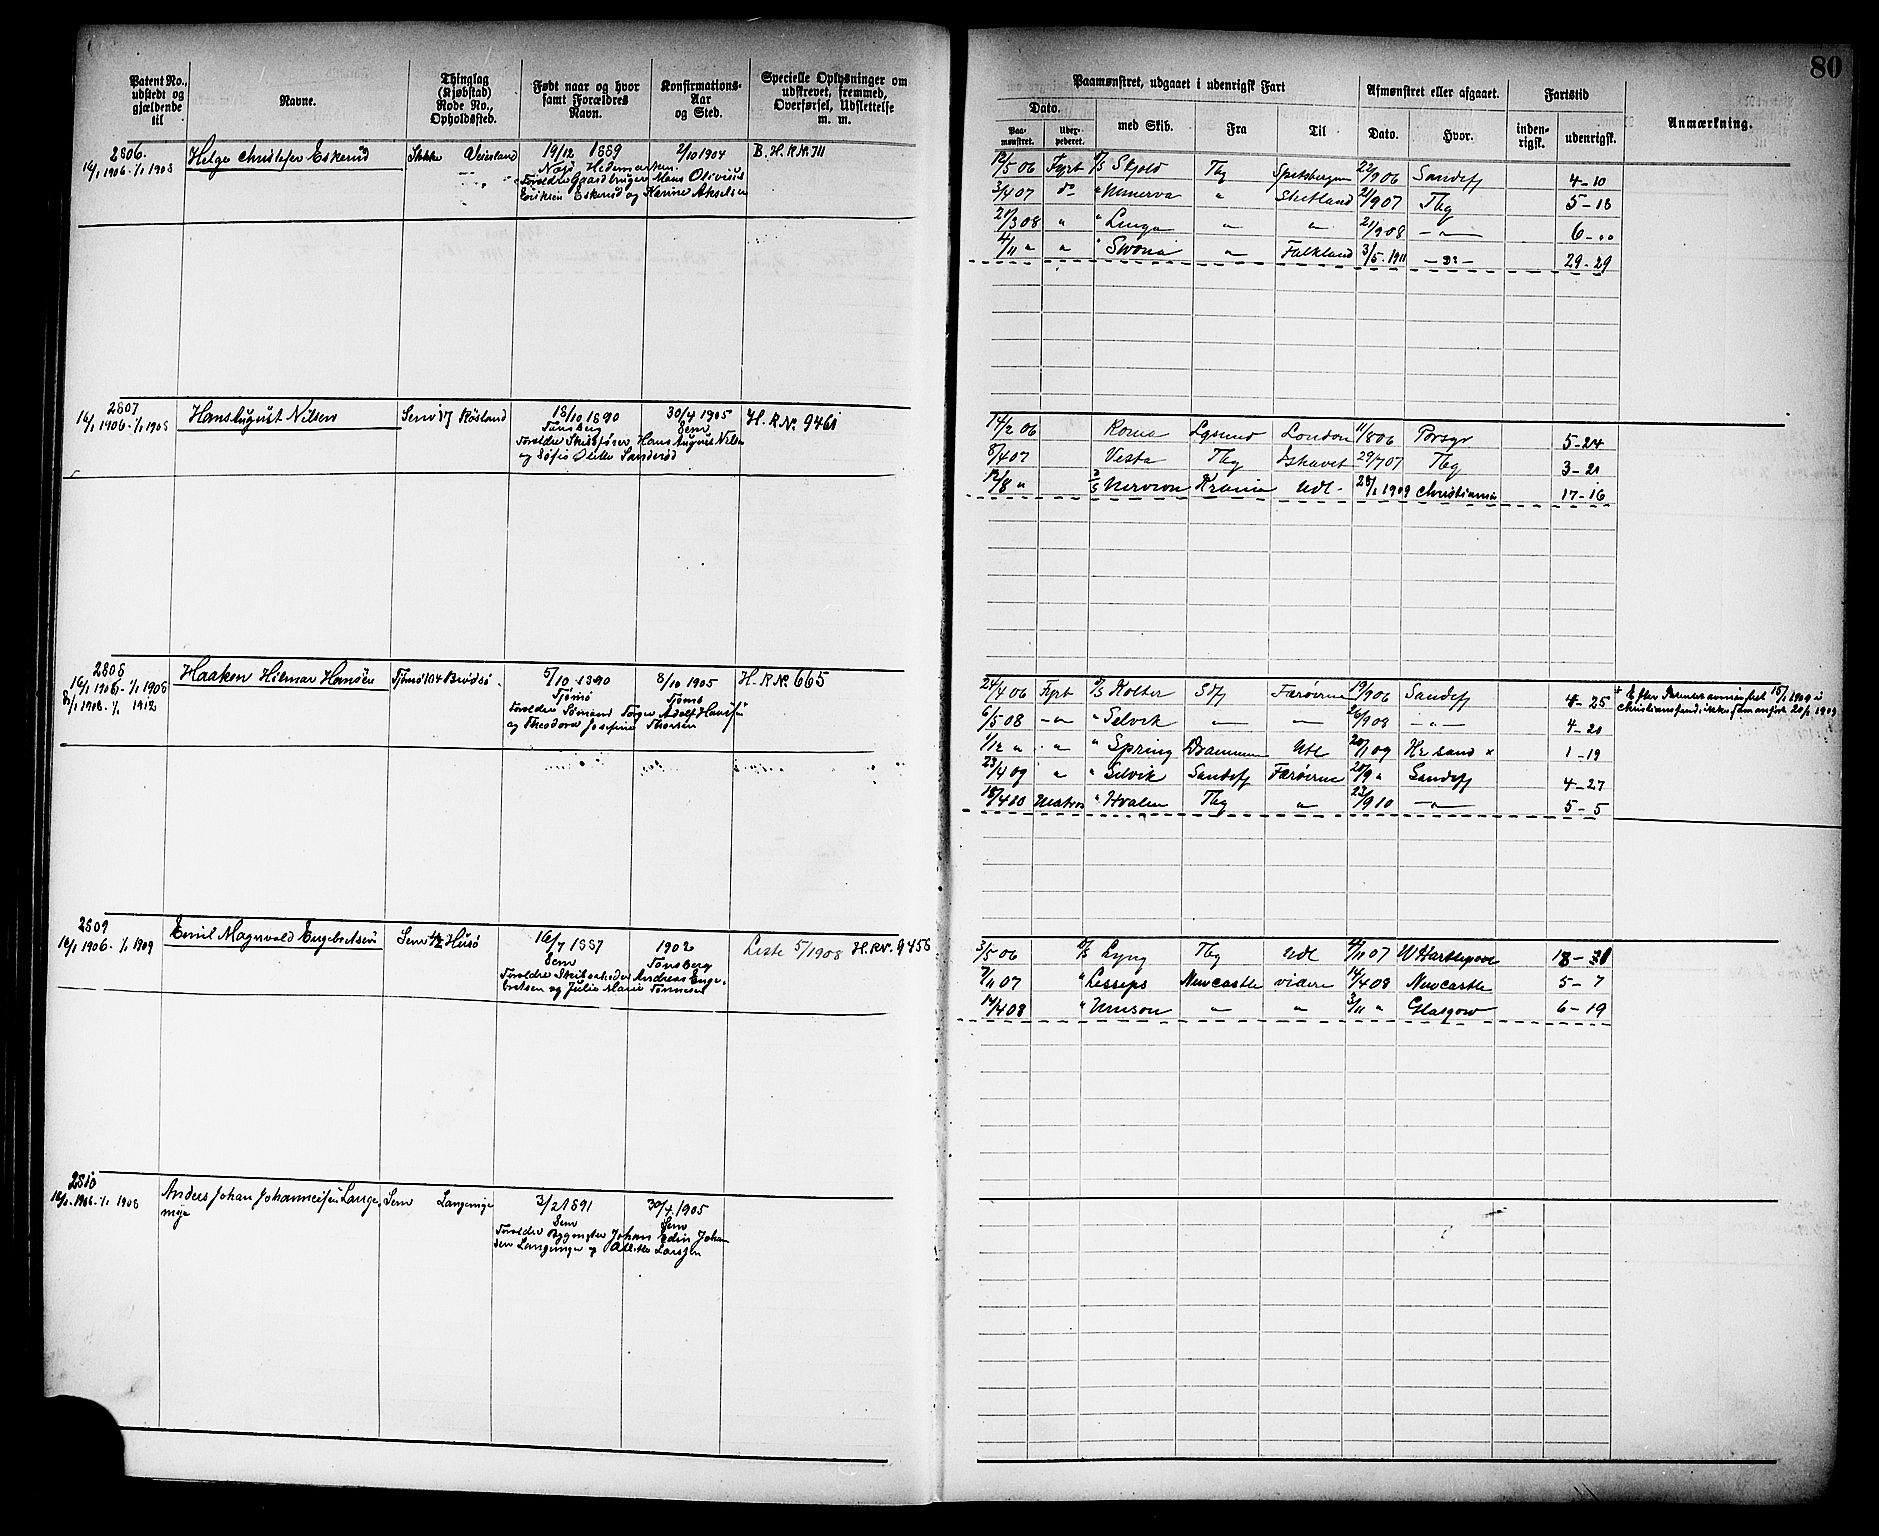 80
Patent No., udstedt og gjældende til
Navne.
Thinglag (Kjøbstad) Rode No., Opholdssted.
Født naar og hvor samt Forældres Navn.
Konfirmations- Aar og Sted.
Specielle Oplysninger om udskrevet, fremmed, Overførsel, Udslettelse m. m.
Paamønstret, udgaaet i udenrigsk Fart
Dato.
Paa-mønstret.
med Skib.
Fra
Til
Afmønstret eller afgaaet.
Dato.
Hvor.
Fartstid
inden-rigsk.
udenrigsk.
Anmærkning.
2806.
16/1 1906 - 1/1 1908
Helge Christofer Eskerud
19/12 1889
2/10 1904
B. H. R. N. 711
Forældre Gaardbruger Hans Olivius
Eriksen Eskerud og Karine Akselsen
12/5 06 Fyrb D/S Skjold Tbg Spitsbergen 22/9 06 Sandefj 4-10
3/4 07 do " Minerva " Shetland 21/9 07 Tbg 5-18
21/3 08 " " " " 21/9 08 -"- 6-"
4/11 " " " Svona " Falkland 3/5 1911 -"- 29-29
2807
16/1 1906 - 1/1 1908
Hans August Nilsen
Sem 17 Røsland
18/10 1890
Tønsberg
30/4 1905
Sem
H. R No. 9461
Forældre Skibstøser Hans August Nilsen
og Sofie Sanderød
14/2 06 Roma London 11/8 06 Porsgr 5-24
8/4 07 Vesta Tbg Ishavet 29/7 07 Tbg 3-21
12/8 " Krania Udl. 28/1 1909 Christiania 17-16
2808
16/1 1906 - 1/1 1908
Haakon Hilmar Hansen
Tjømø 104 Brødsø
5/10 1890
Tjømø
8/10 1905
Tjømø
H. R No. 665
Forældre Sømand Torger Adolf Hansen
og Theodora Josefine Thorsen
24/4 06 Fyrb D/S Kolter Sdfj Færøerne 19/9 06 Sandefj 4-25
6/5 08 -"- " Selvik -"- -"- 26/9 08 -"- 4-20
1/12 " " " Spring Drammen Utl 20/1 09 Kr sand x 1-19
23/4 09 " " Selvik Sandefj Færøerne 20/9 " Sandefj 4-27
18/4 10 Matros " Hvalen Tbg " 23/9 10 -"- 5-5
2809
16/1 1906 - 1/1 1909
Emil Magnvald Engebretsen
Sem Husø
16/7 1887
Sem
1902
Tønsberg
Liste 5/1908 H. R No. 9458
Forældre Skibsreder Andreas Enge-
bretsen og Julie Marie Tønnesen
3/5 06 D/S Lyng Tbg Udl 07 W Hartlepool 18-
7/11 07 " Lesseps Newcastle videre 14/4 08 Newcastle 5-7
14/4 08 " Unison " " 3/11 " Glasgow 6-19
2810
16/1 1906 - 1/1 1908
Anders Johan Johannessen Lange
møje
Sem
3/2 1891
Sem
30/4 1905
Sem
Forældre Bygmester Johan Edin Johan
sen og Larsen